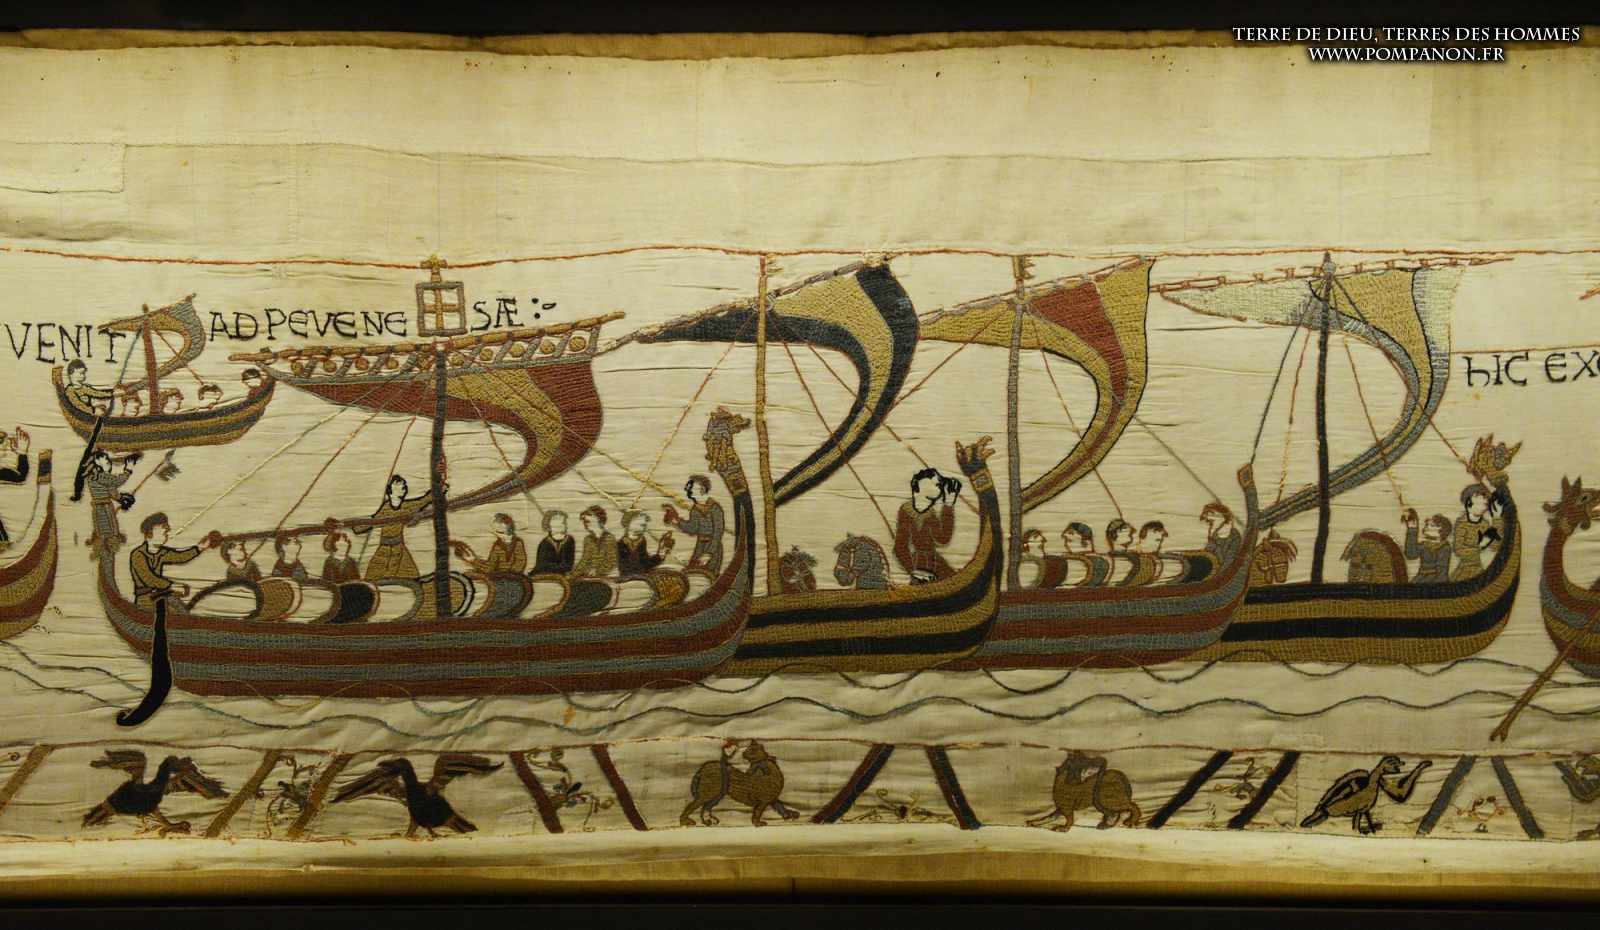 TERRE DE DIEU, TERRES DES HOMMES
WWW.POMPANON.FR
VENIT AD PEVENE SÆ
hIC EX